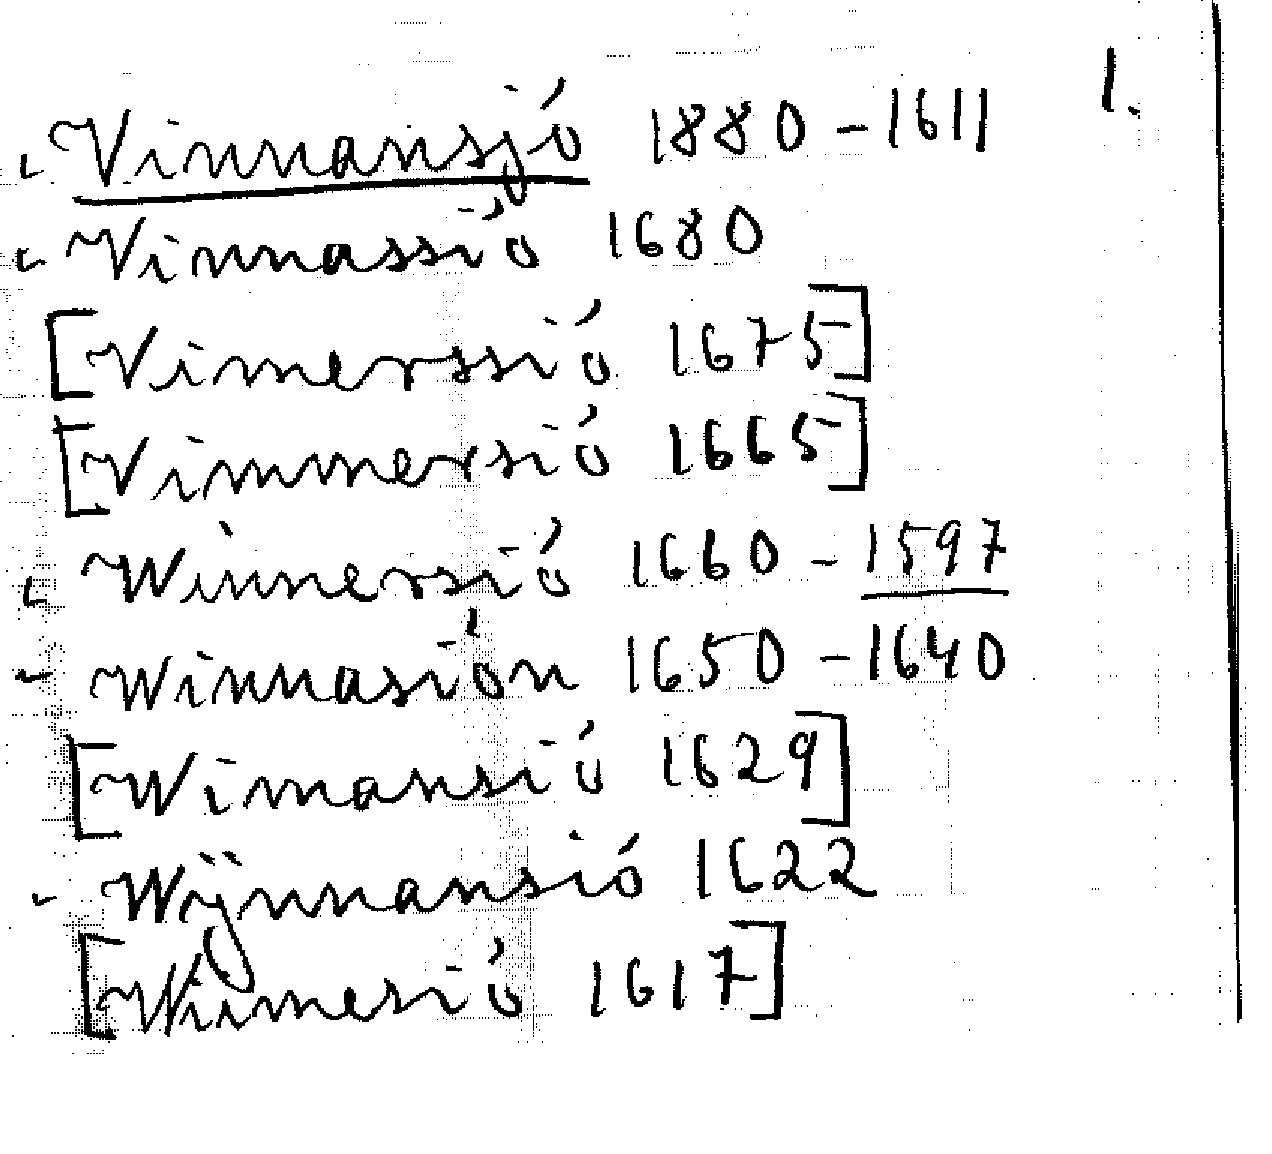 1.
Vinnansjö 1880 - 1611
Vinnassiö 1680
[Vimerssiö 1675]
[Vimmersiö 1665]
Winnersiö 1660 - 1597
Winnasiön 1650 - 1640
[Wimansiö 1629]
Wÿnnansiö 1622
[Wimesiö 1617]